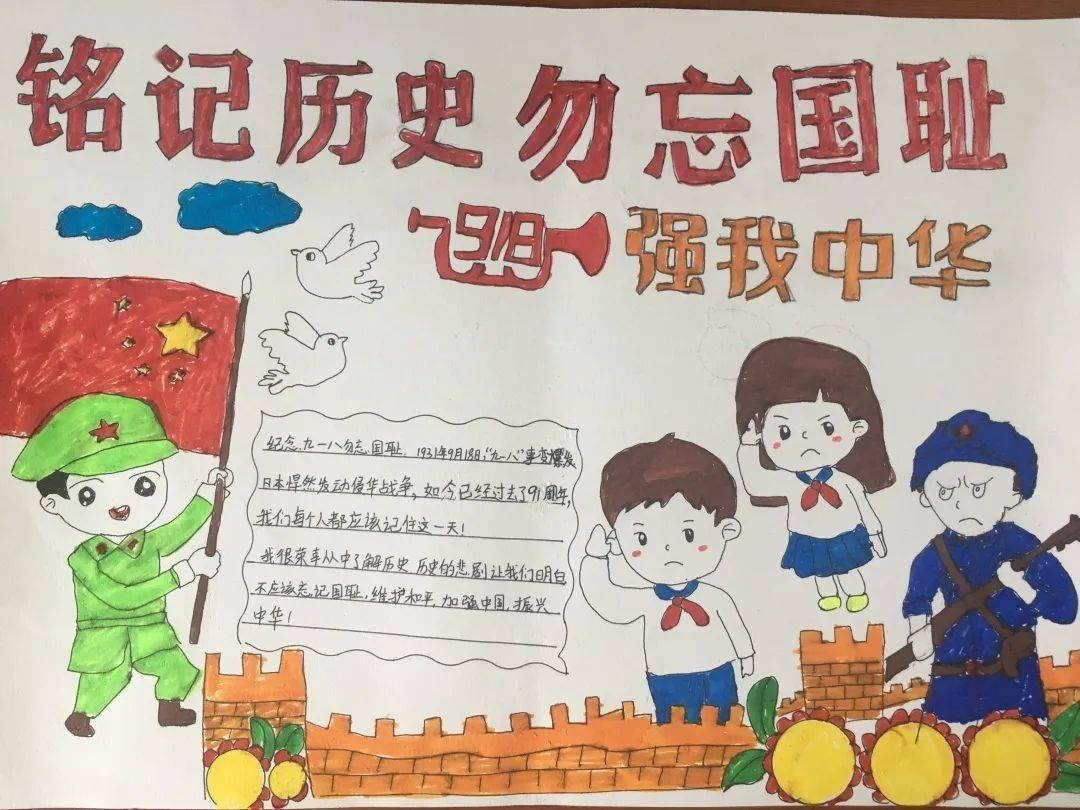 铭记历史勿忘国耻
918
强我中华
纪念九一八勿忘国耻 1931年9月18日,"九一八"事变爆发
日本悍然发动侵华战争,如今已经过去了91周年,
我们每个人都应该记住这一天!
我很荣幸从中了解历史 历史的悲剧让我们明白
不应该忘记国耻,维护和平,加强中国,振兴
中华!